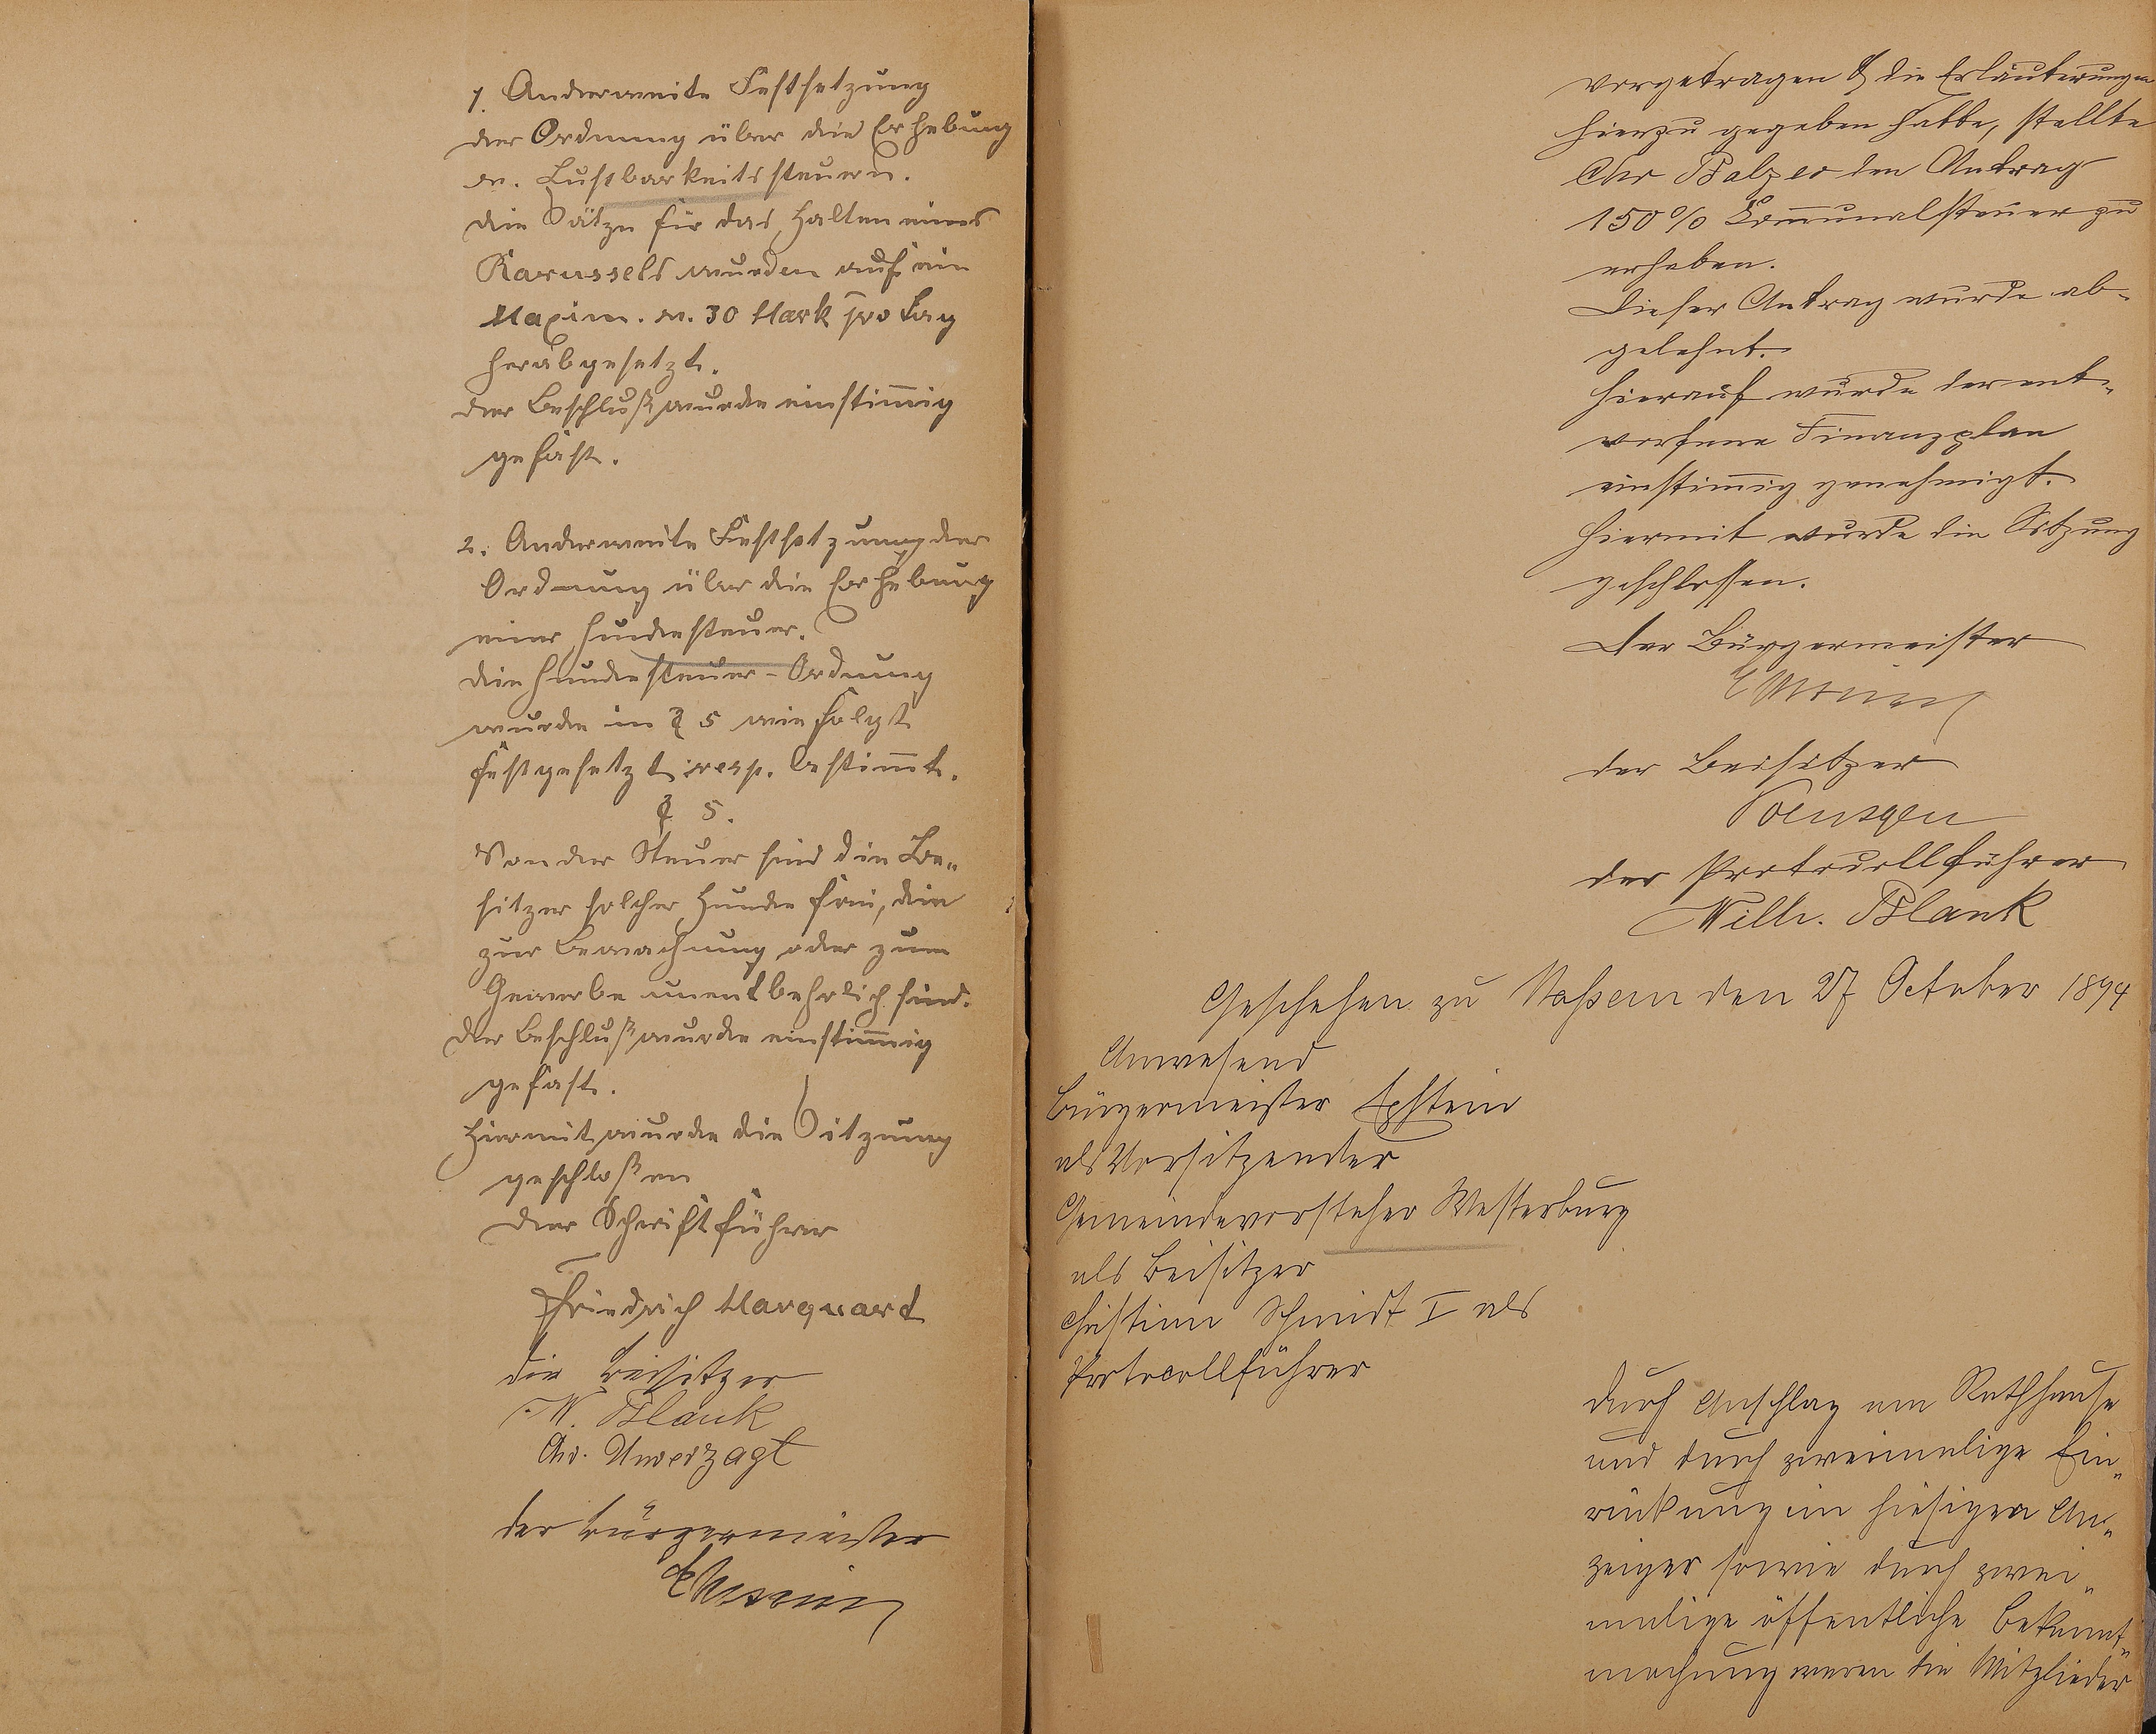 1. Anderweite Festsetzung
der Ordnung über die Erhebung
v. Lustbarkeitssteuern.
die Sätze für das Halten eines
Karussels wurden auf ein
Maxim. v. 30 Mark pro Tag
herabgesetzt.
der Beschluß wurde einstim̅ig
gefaßt.
2. Anderweite Festsetzung der
Ordnung über die Erhebung
einer Hundesteuer.
die Hundesteuer-Ordnung
wurde in § 5 wie folgt
festgesetzt resp. bestim̅t.
§ 5.
Von der Steuer sind die Be„
sitzer solcher Hunde frei, die
zur Bewachung oder zum
Gewerbe unentbehrlich sind.
der Beschluß wurde einstim̅ig
gefast.
Hiermit wurde die Sitzung
geschloßen
der Schriftführer
Friedrich Marquard
die Beisitzer
W. Blank
Chr. Unverzagt
der Bürgermeister
Epstein
vorgetragen & die Erläuterungen
hierzu gegeben hatte, stellte
Chr Balzer den Antrag
150% Com̅unalsteuer zu
erheben.
Dieser Antrag wurde ab-
gelehnt.
Hierauf wurde der ent-
worfene Finanzplan
einstim̅ig genehmigt.
Hiermit wurde die Sitzung
geschlossen.
Der Bürgermeister
Epstein
der Beisitzer
der Protocollführer
Wilh. Blank
Geschehen zu den 27 October 1894
Anwesend
Bürgermeister Epstein
als Vorsitzender
Gemeindevorsteher Westerburg
als Beisitzer
Christian Schmidt I als
Protocollführer
Durch Anschlag am Rathhause
und durch zweimalige Ein„
rückung im hiesigen An„
zeiger sowie durch zwei„
malige öffentliche Bekannt„
machung waren die Mitglieder